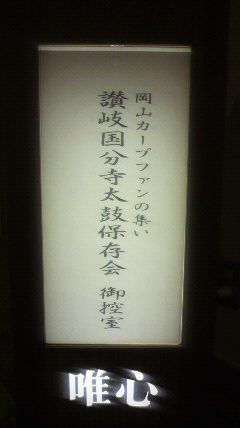 岡山カープファンの集い
讃岐国分寺太鼓保存会 御控室
唯心